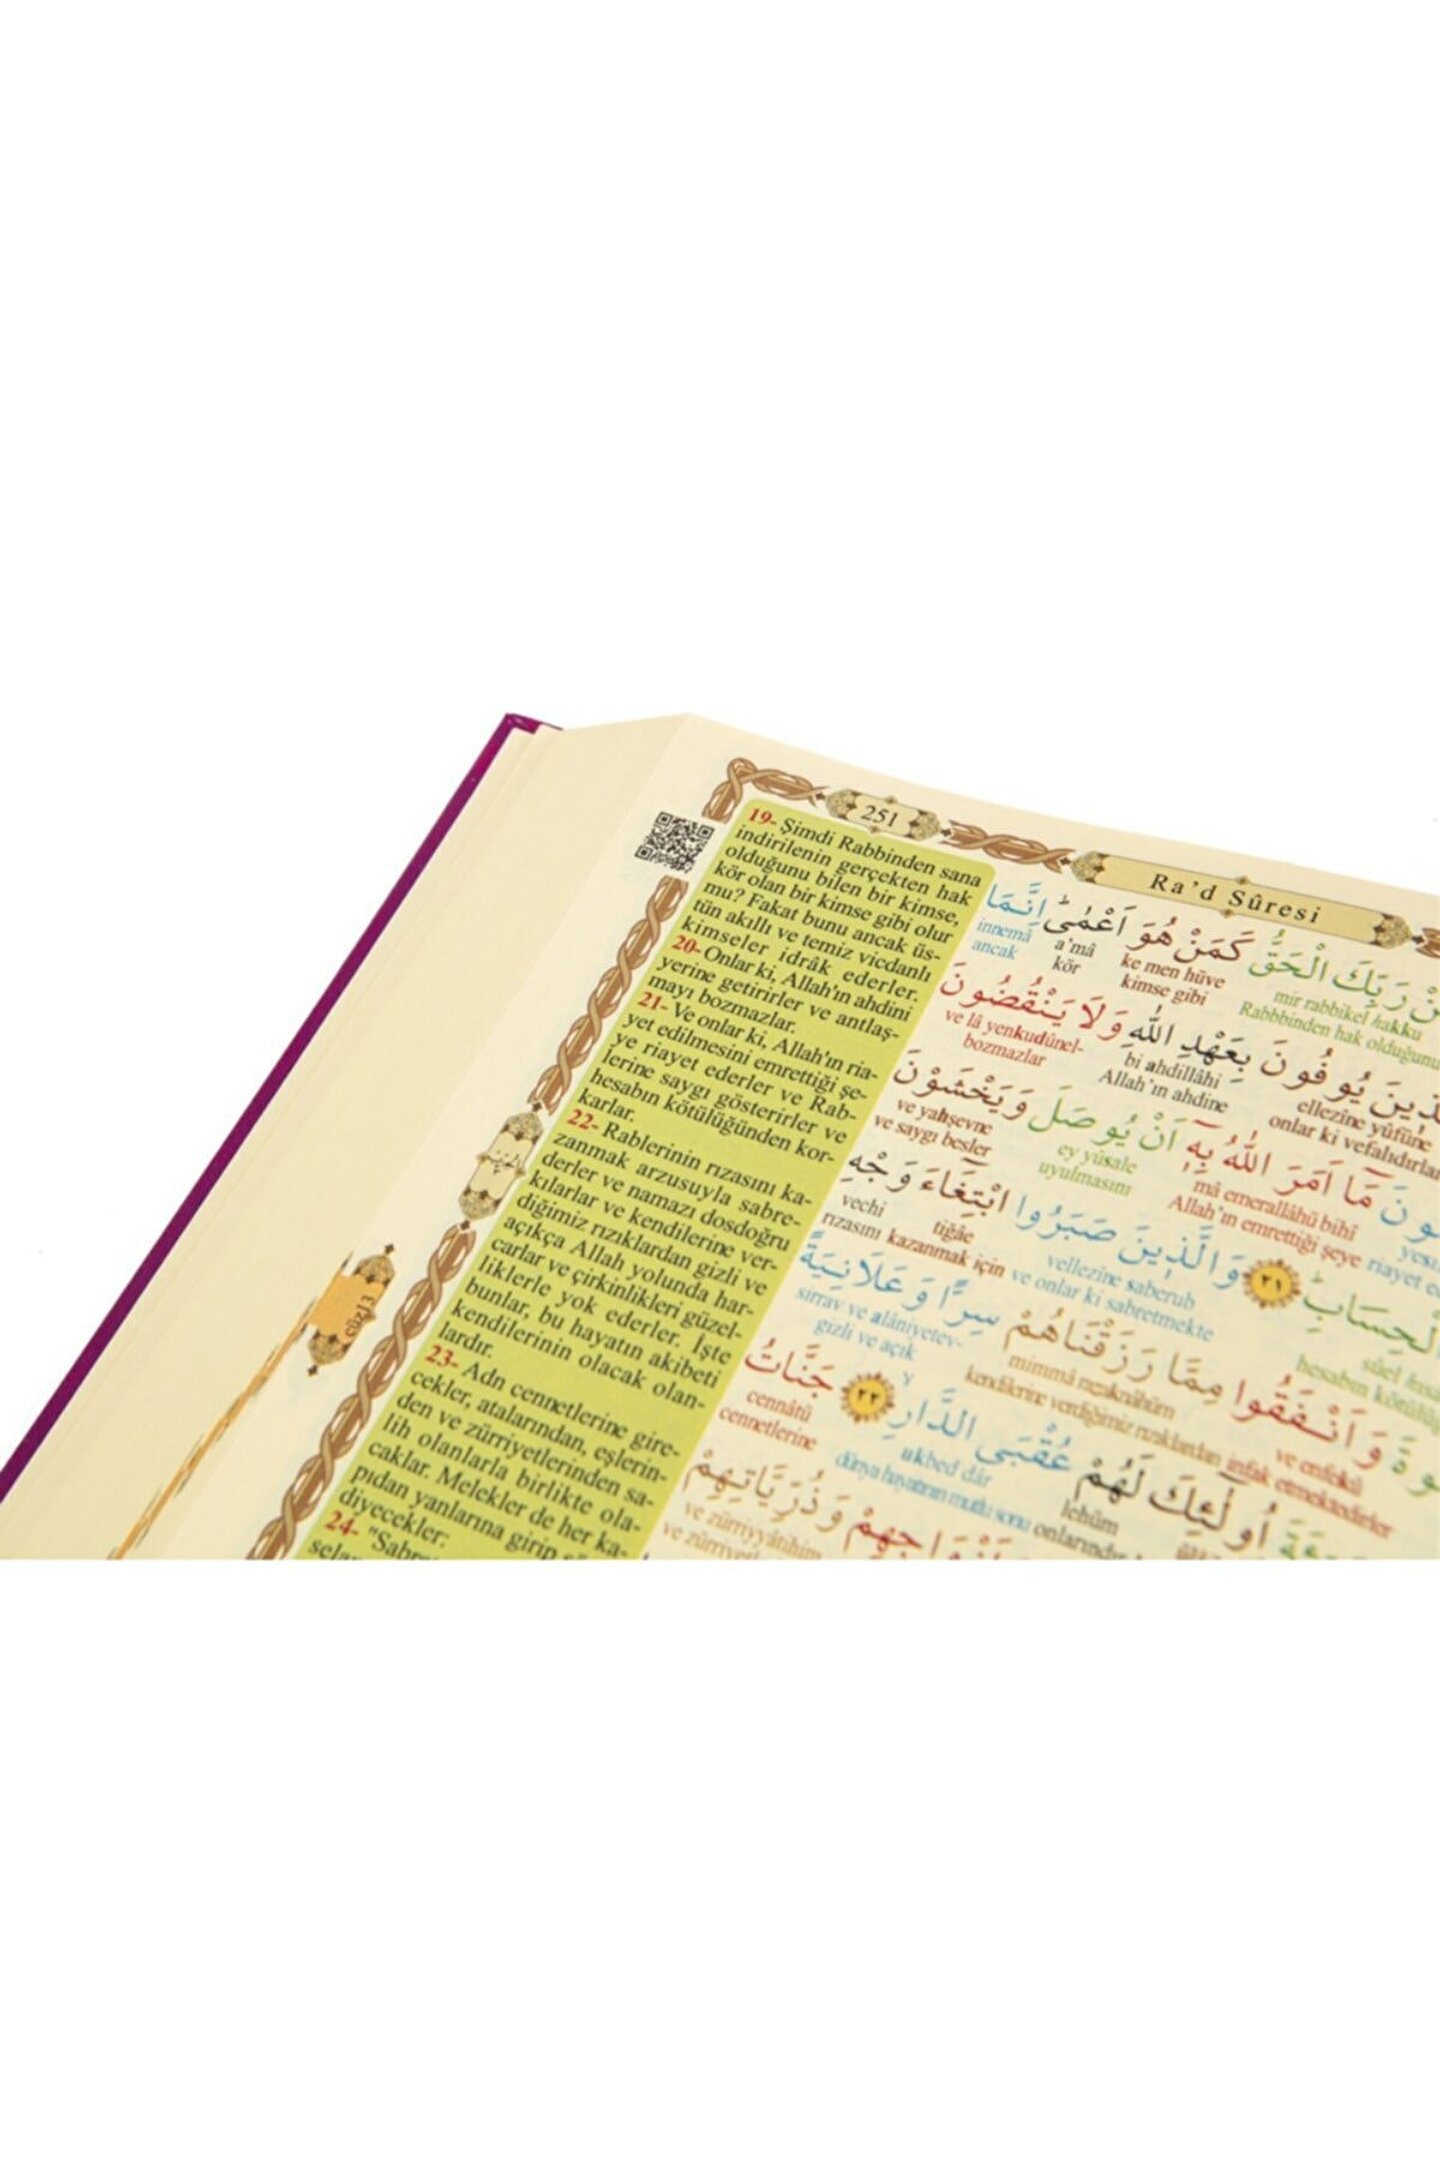 251
Ra'd Sûresi
19- Şimdi Rabbinden sana
indirilenin gerçekten hak
olduğunu bilen bir kimse,
kör olan bir kimse gibi olur
mu? Fakat bunu ancak üs-
tün akıllı ve temiz vicdanlı
kimseler idrâk ederler.
20- Onlar ki, Allah'ın ahdini
yerine getirirler ve antlaş-
mayı bozmazlar.
21- Ve onlar ki, Allah'ın ria-
yet edilmesini emrettiği şe-
ye riayet ederler ve Rab-
lerine saygı gösterirler ve
hesabın kötülüğünden kor-
karlar.
22- Rablerinin rızasını ka-
zanmak arzusuyla sabre-
derler ve namazı dosdoğru
kılarlar ve kendilerine ver-
diğimiz rızıklardan gizli ve
açıkça Allah yolunda har-
carlar ve çirkinlikleri güzel-
liklerle yok ederler. İşte
bunlar, bu hayatın akibeti
kendilerinin olacak olan-
lardır.
23- Adn cennetlerine gire-
cekler, atalarından, eşlerin-
den ve zürriyetlerinden sa-
lih olanlarla birlikte ola-
caklar. Melekler de her ka-
pıdan yanlarına girip
diyecekler:
24- "Sabre
cüz13
رَبِّكَ الْحَقُّ كَمَنْ هُوَ اَعْمٰىۜ اِنَّمَا
mir rabbikel hakku ke men hüve a'mâ innemâ
Rabbbinden hak olduğunu kimse gibi kör ancak
يُوفُونَ بِعَهْدِ اللّٰهِ وَلَا يَنْقُضُونَ
ellezîne yûfûne bi ahdillâhi ve lâ yenkudûnel-
onlar ki vefalıdırlar Allah'ın ahdine bozmazlar
مَٓا اَمَرَ اللّٰهُ بِهٖٓ اَنْ يُوصَلَ وَيَخْشَوْنَ
mâ emerallâhü bihî ey yûsale ve yahşevne
Allah'ın emrettiği şeye riayet uyulmasını ve saygı besler
الْحِسَابِۜ ٢١ وَالَّذٖينَ صَبَرُوا ابْتِغَٓاءَ وَجْهِ
vellezîne saberub tiğâe vechi
hesabın ve onlar ki sabretmekte rızasını kazanmak için
وَاَنْفَقُوا مِمَّا رَزَقْنَاهُمْ سِرًّا وَعَلَانِيَةً
ve enfekû mimmâ razaknâhüm sirrav ve alâniyetev-
infak etmektedirler kendilerine verdiğimiz rızıklardan gizli ve açık
اُولٰٓئِكَ لَهُمْ عُقْبَى الدَّارِۙ ٢٢ جَنَّاتُ
lehüm ukbed dâr cennâtü
dünya hayatının mutlu sonu cennetlerine
وَذُرِّيَّاتِهِمْ
ve zürriyyâtihim